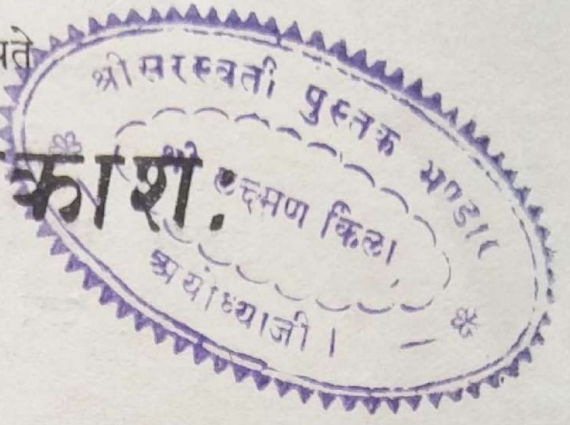 पते
काश:
श्री सरस्वती पुस्तक भण्डार
श्री लक्ष्मण किला
श्रयोध्याजी ।